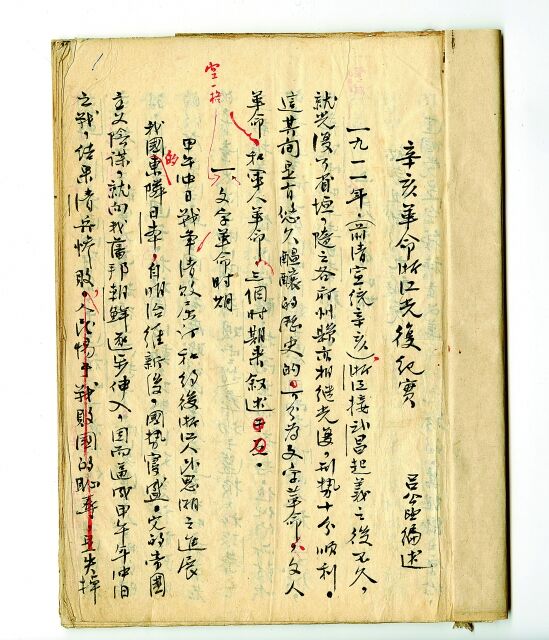 辛亥革命浙江光復紀實
呂公望編述
一九一一年，(前清宣統辛亥)浙江接武昌起義之後不久，
就光復了省垣，隨之各府州縣亦相繼光復，形勢十分順利。
這其間是有悠久醞釀的歷史的，可分為文字革命，文人
革命，和軍人革命，三個時期來叙述于后。
空一格
一、文字革命時期
甲午中日戰爭清敗屈訂和約後浙江人民思潮之進展
我國的東隣日本，自明治維新後，國勢富盛，它的帝國
主义陰谋，就向我藩邦朝鮮逐步伸入，因而逼成甲午年中日
之戰，结果清兵慘敗，人民惕于戰敗國的恥辱，且失掉